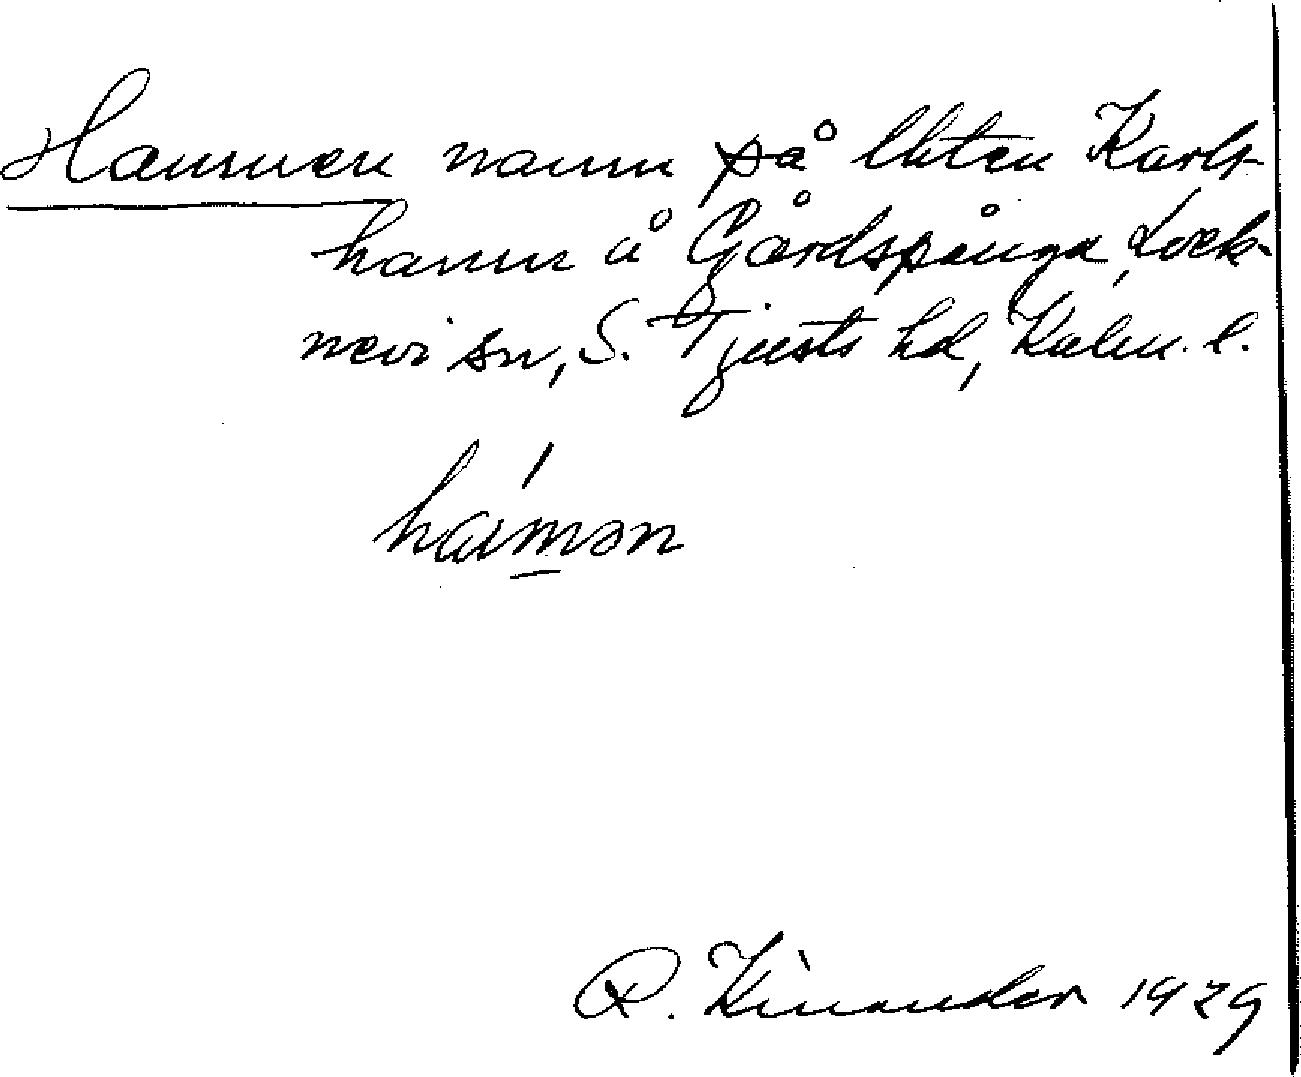 Hammen namn på lhten Karls-
hamn å Gårdspånga, Lock-
nevi sn, S. Tjusts hd, Kalm. l.
hámən
R. Kinander 1929